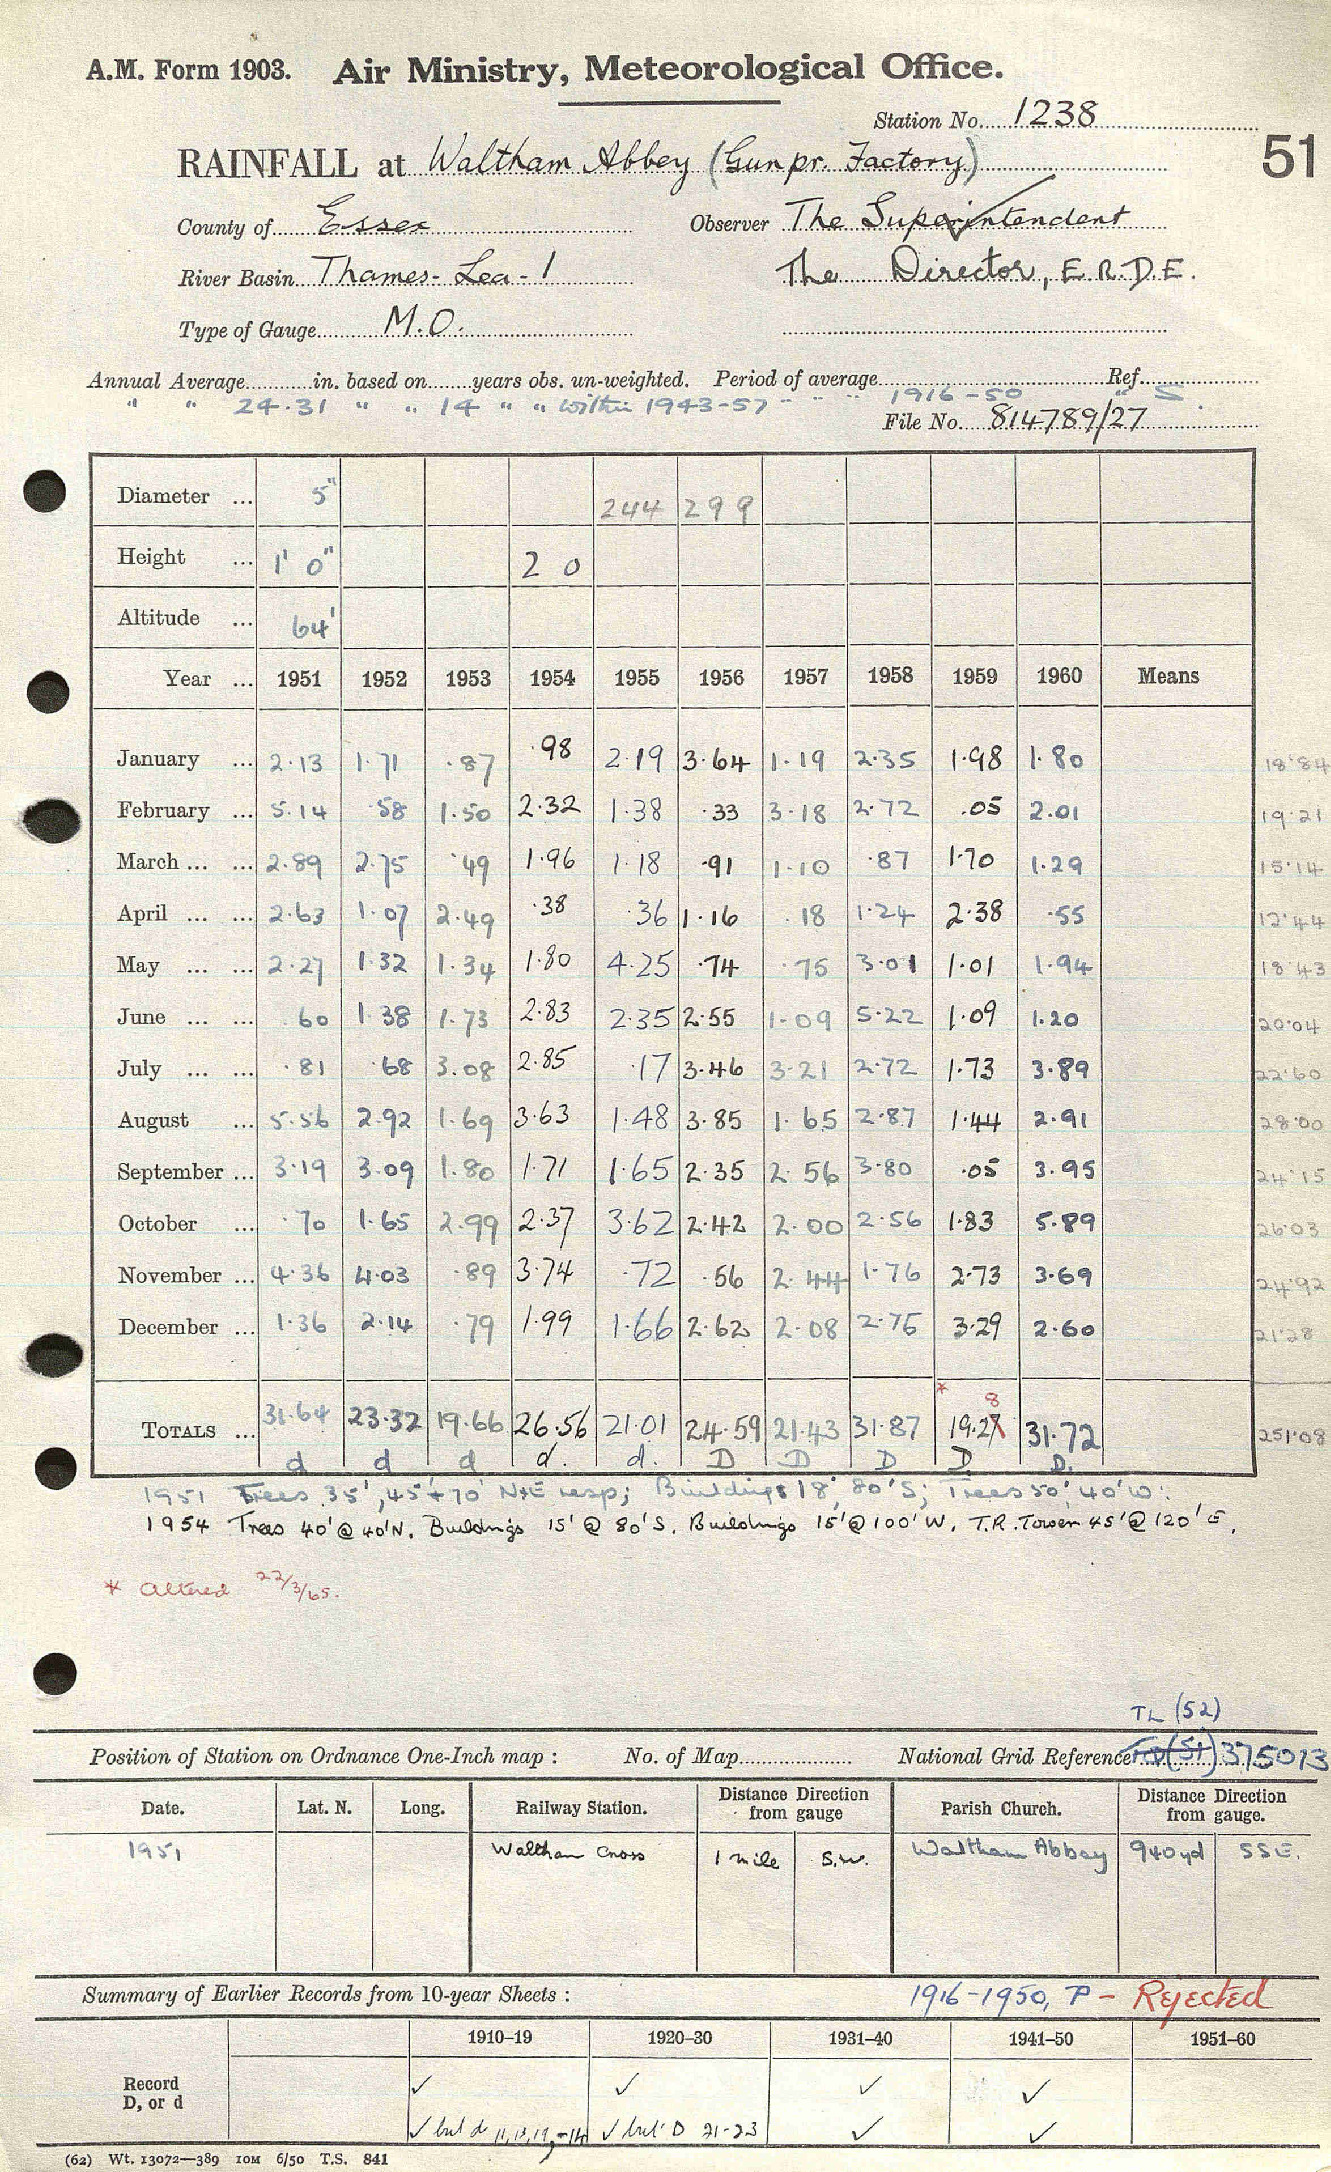 A.M. Form 1903. Air Ministry, Meteorological Office.
Station No. 1238
RAINFALL at Waltham Abbey (Gunpr. Factory)
51
County of Essex Observer The Superintendent
River Basin Thames-Lea-1 The Director, E.R.D.E.
Type of Gauge M.O.
Annual Average in. based on years obs. un-weighted. Period of average Ref.
" " 24.31 " " 14 " " within 1943-57 " " " 1916-50 " S
File No. 814789/27
Diameter ... 5" 244 299
Height ... 1' 0" 2 0
Altitude ... 64'
Year ... 1951 1952 1953 1954 1955 1956 1957 1958 1959 1960 Means
January ... 2.13 1.71 .87 .98 2.19 3.64 1.19 2.35 1.98 1.80 18.84
February ... 5.14 .58 1.50 2.32 1.38 .33 3.18 2.72 .05 2.01 19.21
March ... ... 2.89 2.75 .49 1.96 1.18 .91 1.10 .87 1.70 1.29 15.14
April ... ... 2.63 1.07 2.49 .38 .36 1.16 .18 1.24 2.38 .55 12.44
May ... ... 2.27 1.32 1.34 1.80 4.25 .74 .75 3.01 1.01 1.94 18.43
June ... ... .60 1.38 1.73 2.83 2.35 2.55 1.09 5.22 1.09 1.20 20.04
July ... ... .81 .68 3.08 2.85 .17 3.46 3.21 2.72 1.73 3.89 22.60
August ... 5.56 2.92 1.69 3.63 1.48 3.85 1.65 2.87 1.44 2.91 28.00
September ... 3.19 3.09 1.80 1.71 1.65 2.35 2.56 3.80 .05 3.95 24.15
October ... .70 1.65 2.99 2.37 3.62 2.42 2.00 2.56 1.83 5.89 26.03
November ... 4.36 4.03 .89 3.74 .72 .56 2.44 1.76 2.73 3.69 24.92
December ... 1.36 2.14 .79 1.99 1.66 2.62 2.08 2.75 3.29 2.60 21.28
* 8
TOTALS ... 31.64 23.32 19.66 26.56 21.01 24.59 21.43 31.87 19.27 31.72 251.08
d d d d. d. D D D D. D.
1951 Trees 35', 45' + 70' N+E resp; Buildings 18', 80' S; Trees 50', 40' W.
1954 Trees 40' @ 40' N. Buildings 15' @ 80' S. Buildings 15' @ 100' W. T.R. Tower 45' @ 120' E.
* altered 22/3/65.
TL (52)
Position of Station on Ordnance One-Inch map : No. of Map National Grid Reference (51) 375013
Date. Lat. N. Long. Railway Station. Distance Direction from gauge Parish Church. Distance Direction from gauge.
1951 Waltham Cross 1 mile S.W. Waltham Abbey 940 yd SSE.
Summary of Earlier Records from 10-year Sheets : 1916-1950, P - Rejected
1910–19 1920–30 1931–40 1941–50 1951–60
Record ✓ ✓ ✓ ✓
D, or d
✓ but d ✓ but D 21-23 ✓ ✓
(62) Wt. 13072—389 10M 6/50 T.S. 841